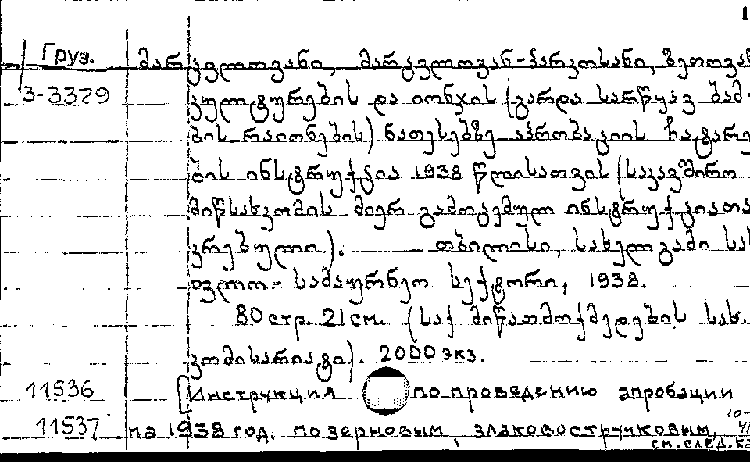 1
Груз. მარცვლოვანი, მარცვლოვან-პარკოსანი, ზეთოვან
3-3329 კულტურების და იონჯის (გარდა სარწყავ ბამ-
ბის რაიონების) ნათესებზე აპრობაციის ჩატარე
ბის ინსტრუქცია 1938 წლისათვის (საკავშირო
მიწსახკომის მიერ გამოცემულ ინსტრუქციათა
კრებული). თბილისი, სახელგამი სას
ოფლო-სამეურნეო სექტორი, 1938.
80 стр. 21 см. (საქ მიწათმოქმედების სახ.
კომისარიატი). 2000 экз.
11536 [Инструкция по проведению апробации
11537 на 1938 год. по зерновым, злаковостручковым,
см. след. ка